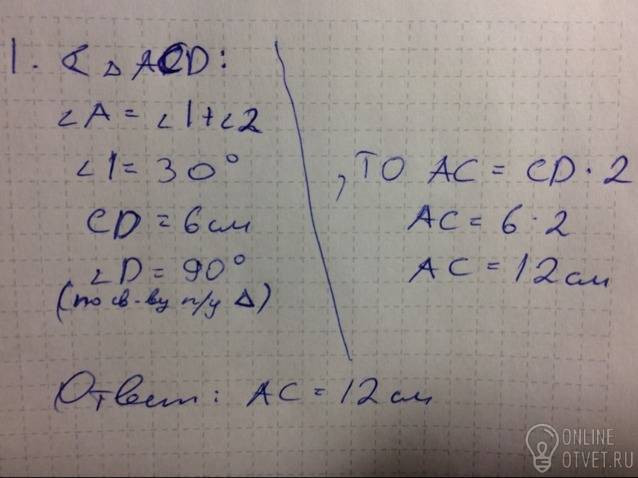 1. △ ACD:
∠A = ∠1+∠2
∠1 = 30°
CD = 6 см
∠D = 90°
(по св-ву п/у △)
, ТО AC = CD · 2
AC = 6 · 2
AC = 12 см
Ответ: AC = 12 см
ONLINE
OTVET.RU